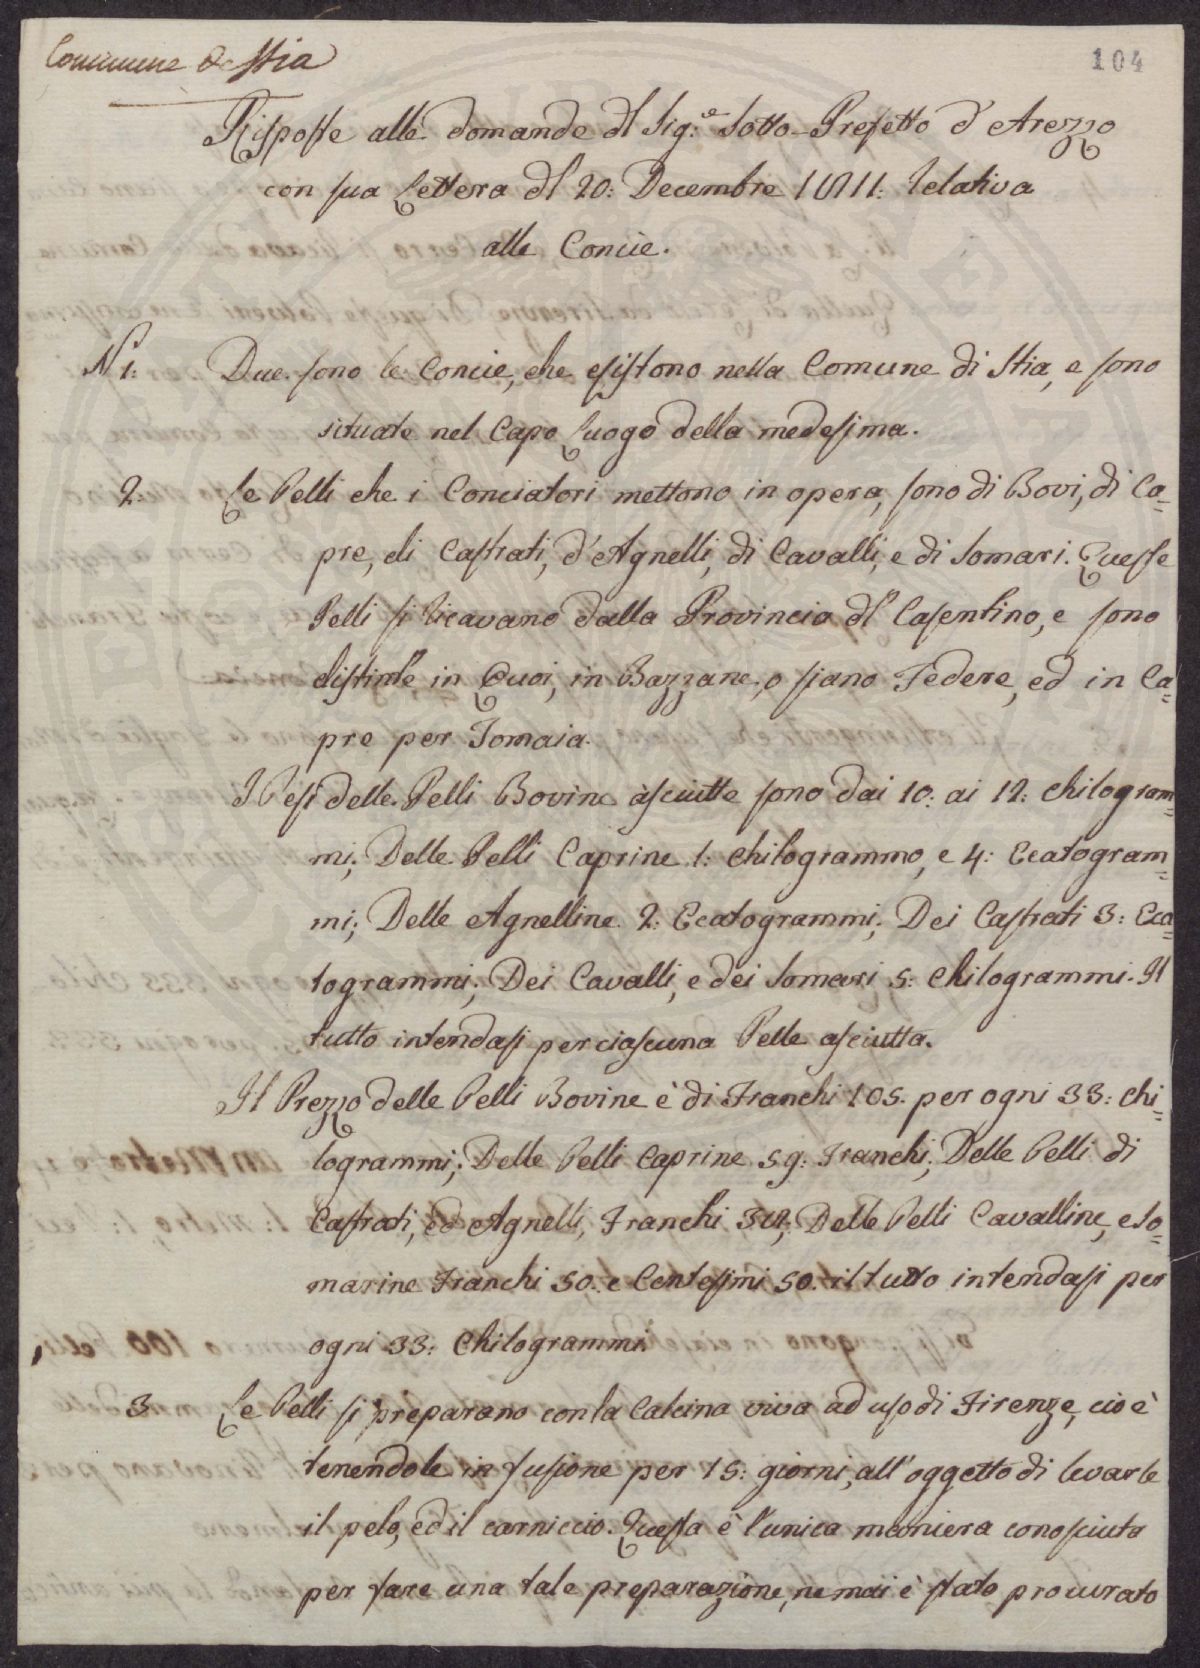 Commune di Stia
104
Risposte alle domande dl Sig.e Sotto-Prefetto d'Arezzo
con sua Lettera dl 20: Decembre 1811: Relativa
alle Concie.
N° 1: Due sono le Concie, che esistono nella Comune di Stia, e sono
situate nel Capo Luogo della medesima.
2. Le Pelli che i Conciatori mettono in opera, sono di Bovi, di Ca=
pre, di Castrati, d'Agnelli, di Cavalli, e di Somari. Queste
Pelli si ricavano dalla Provincia dl Casentino, e sono
distinte in Quoi, in Bazzane, o siano Federe, ed in Ca=
pre per Tomaia.
I Pesi delle Pelli Bovine asciutte sono dai 10: ai 12: Chilogram=
mi; Delle Pelli Caprine 1: Chilogrammo, e 4: Ecatogram=
mi; Delle Agnelline 2: Ecatogrammi; Dei Castrati 3: Eca=
togrammi; Dei Cavalli, e dei Somari 5: Chilogrammi. Il
tutto intendasi per ciascuna Pelle asciutta.
Il Prezzo delle Pelli Bovine è di Franchi 105. per ogni 33: Chi=
logrammi; Delle Pelli Caprine 59: Franchi; Delle Pelli di
Castrati, ed Agnelli, Franchi Delle Pelli Cavalline, e So=
marine Franchi 50: e Centesimi 50. il tutto intendasi per
ogni 33: Chilogrammi.
3 Le Pelli si preparano con la Calcina viva ad uso di Firenze, cioè
tenendole in fusione per 15: giorni, all'oggetto di levarle
il pelo, ed il carniccio. Questa è l'unica maniera conosciuta
per fare una tale preparazione, ne mai è stato procurato